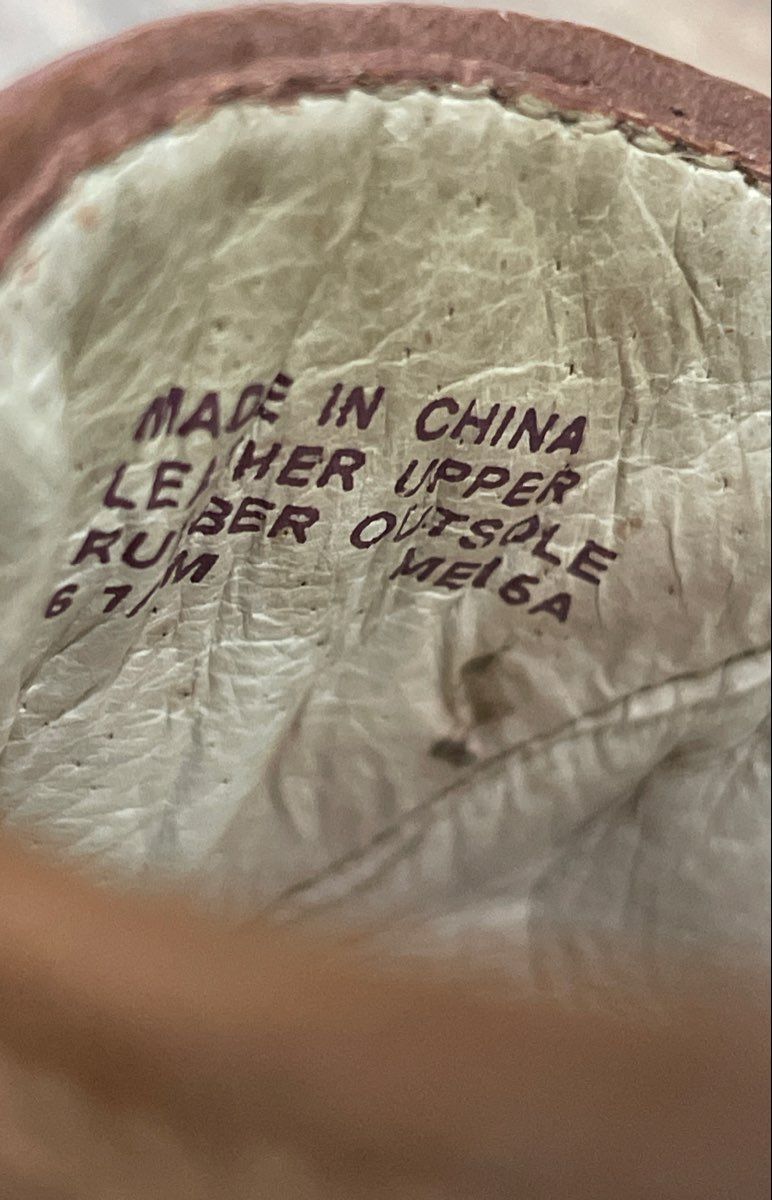 MADE IN CHINA
LEATHER UPPER
RUBBER OUTSOLE
6 7/M ME16A